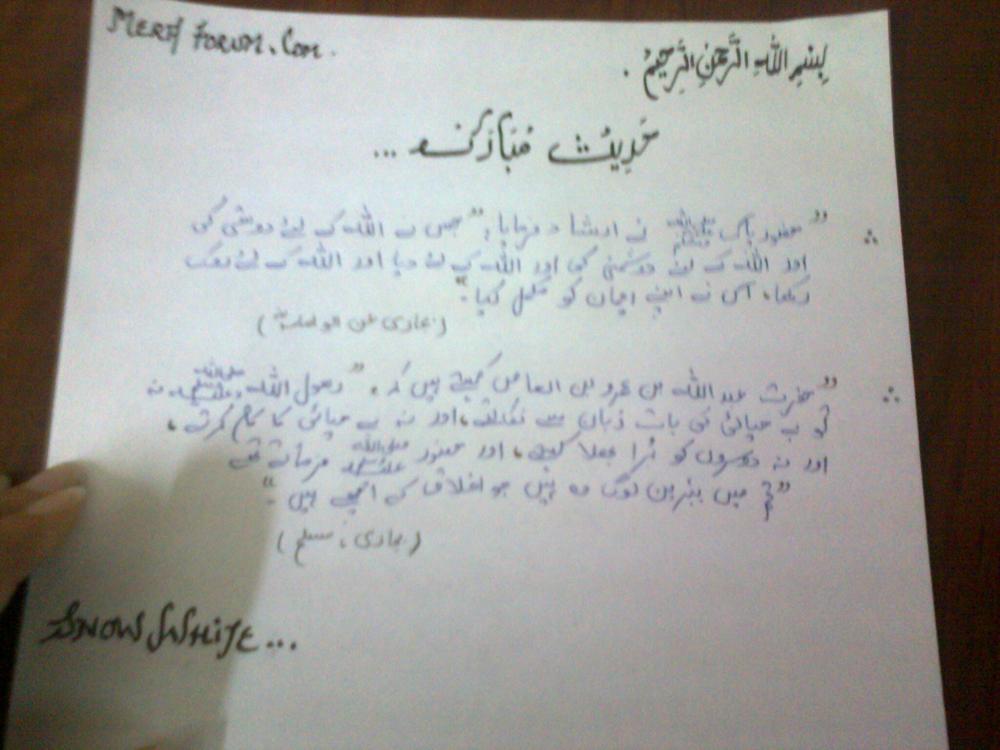 MERiT FORUM.Com.
بِسْمِ اللّٰهِ الرَّحْمٰنِ الرَّحِيْمِ .
حَدِیْث مُبَارَکہ ...
" حضور پاک ﷺ نے ارشاد فرمایا: " جس نے اللہ کے لئے دوستی کی
اور اللہ کے لئے دشمنی کی اور اللہ کے لئے دیا اور اللہ کے لئے روک
رکھا، اس نے اپنے ایمان کو مکمل کیا۔"
(بخاری عن ابو امامہ)
" حضرت عبد اللہ بن عمرو بن العاص کہتے ہیں کہ، " رسول اللہ ﷺ نہ
تو بے حیائی کی بات زبان سے نکالتے، اور نہ بے حیائی کا کام کرتے،
اور نہ دوسروں کو بُرا بھلا کہتے، اور حضور ﷺ فرماتے تھے
" تم میں بہترین لوگ وہ ہیں جو اخلاق کے اچھے ہیں۔"
(بخاری، مسلم)
SNOW WHiTE...